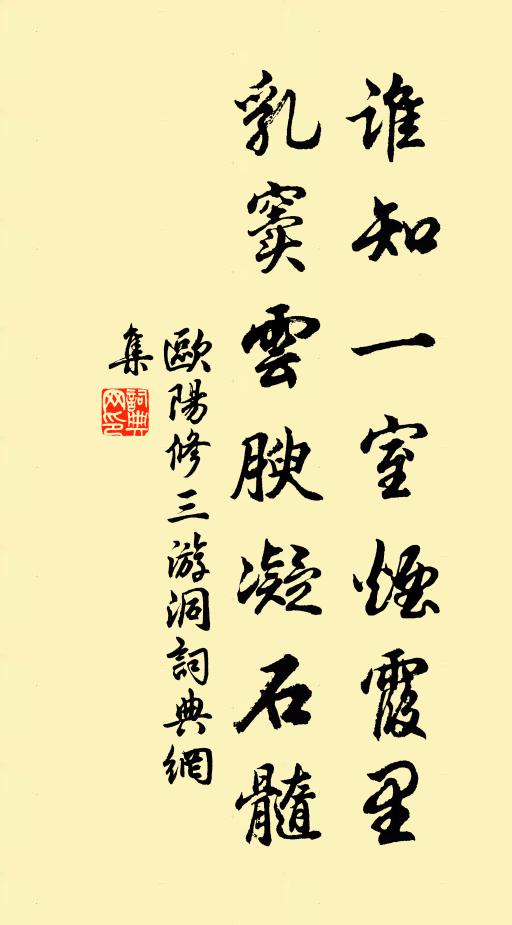 誰知一室煙霞里
乳竇雲腴凝石髓
歐陽修三游洞詞典網
集
詞典網印